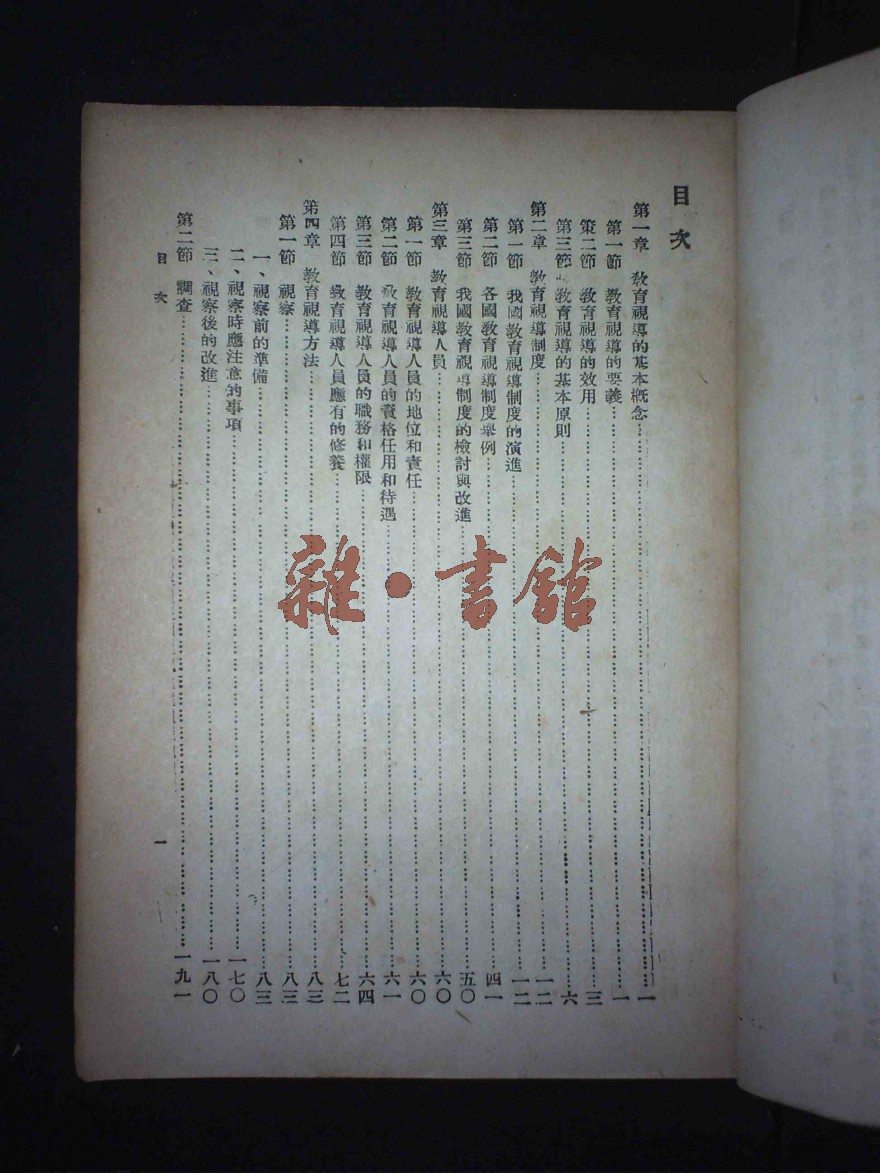 目次
第一章 教育視導的基本概念……一
第一節 教育視導的要義……一
第二節 教育視導的效用……三
第三節 教育視導的基本原則……六
第二章 教育視導制度……一二
第一節 我國教育視導制度的演進……一二
第二節 各國教育視導制度舉例……四一
第三節 我國教育視導制度的檢討與改進……五〇
第三章 教育視導人員……六〇
第一節 教育視導人員的地位和責任……六〇
第二節 教育視導人員的資格任用和待遇……六一
第三節 教育視導人員的職務和權限……六四
第四節 教育視導人員應有的修養……七二
第四章 教育視導方法……八三
第一節 視察……八三
一、視察前的準備……八三
二、視察時應注意的事項……一七〇
三、視察後的改進……一八〇
第二節 調查……一九一
目次
一
雜·書館